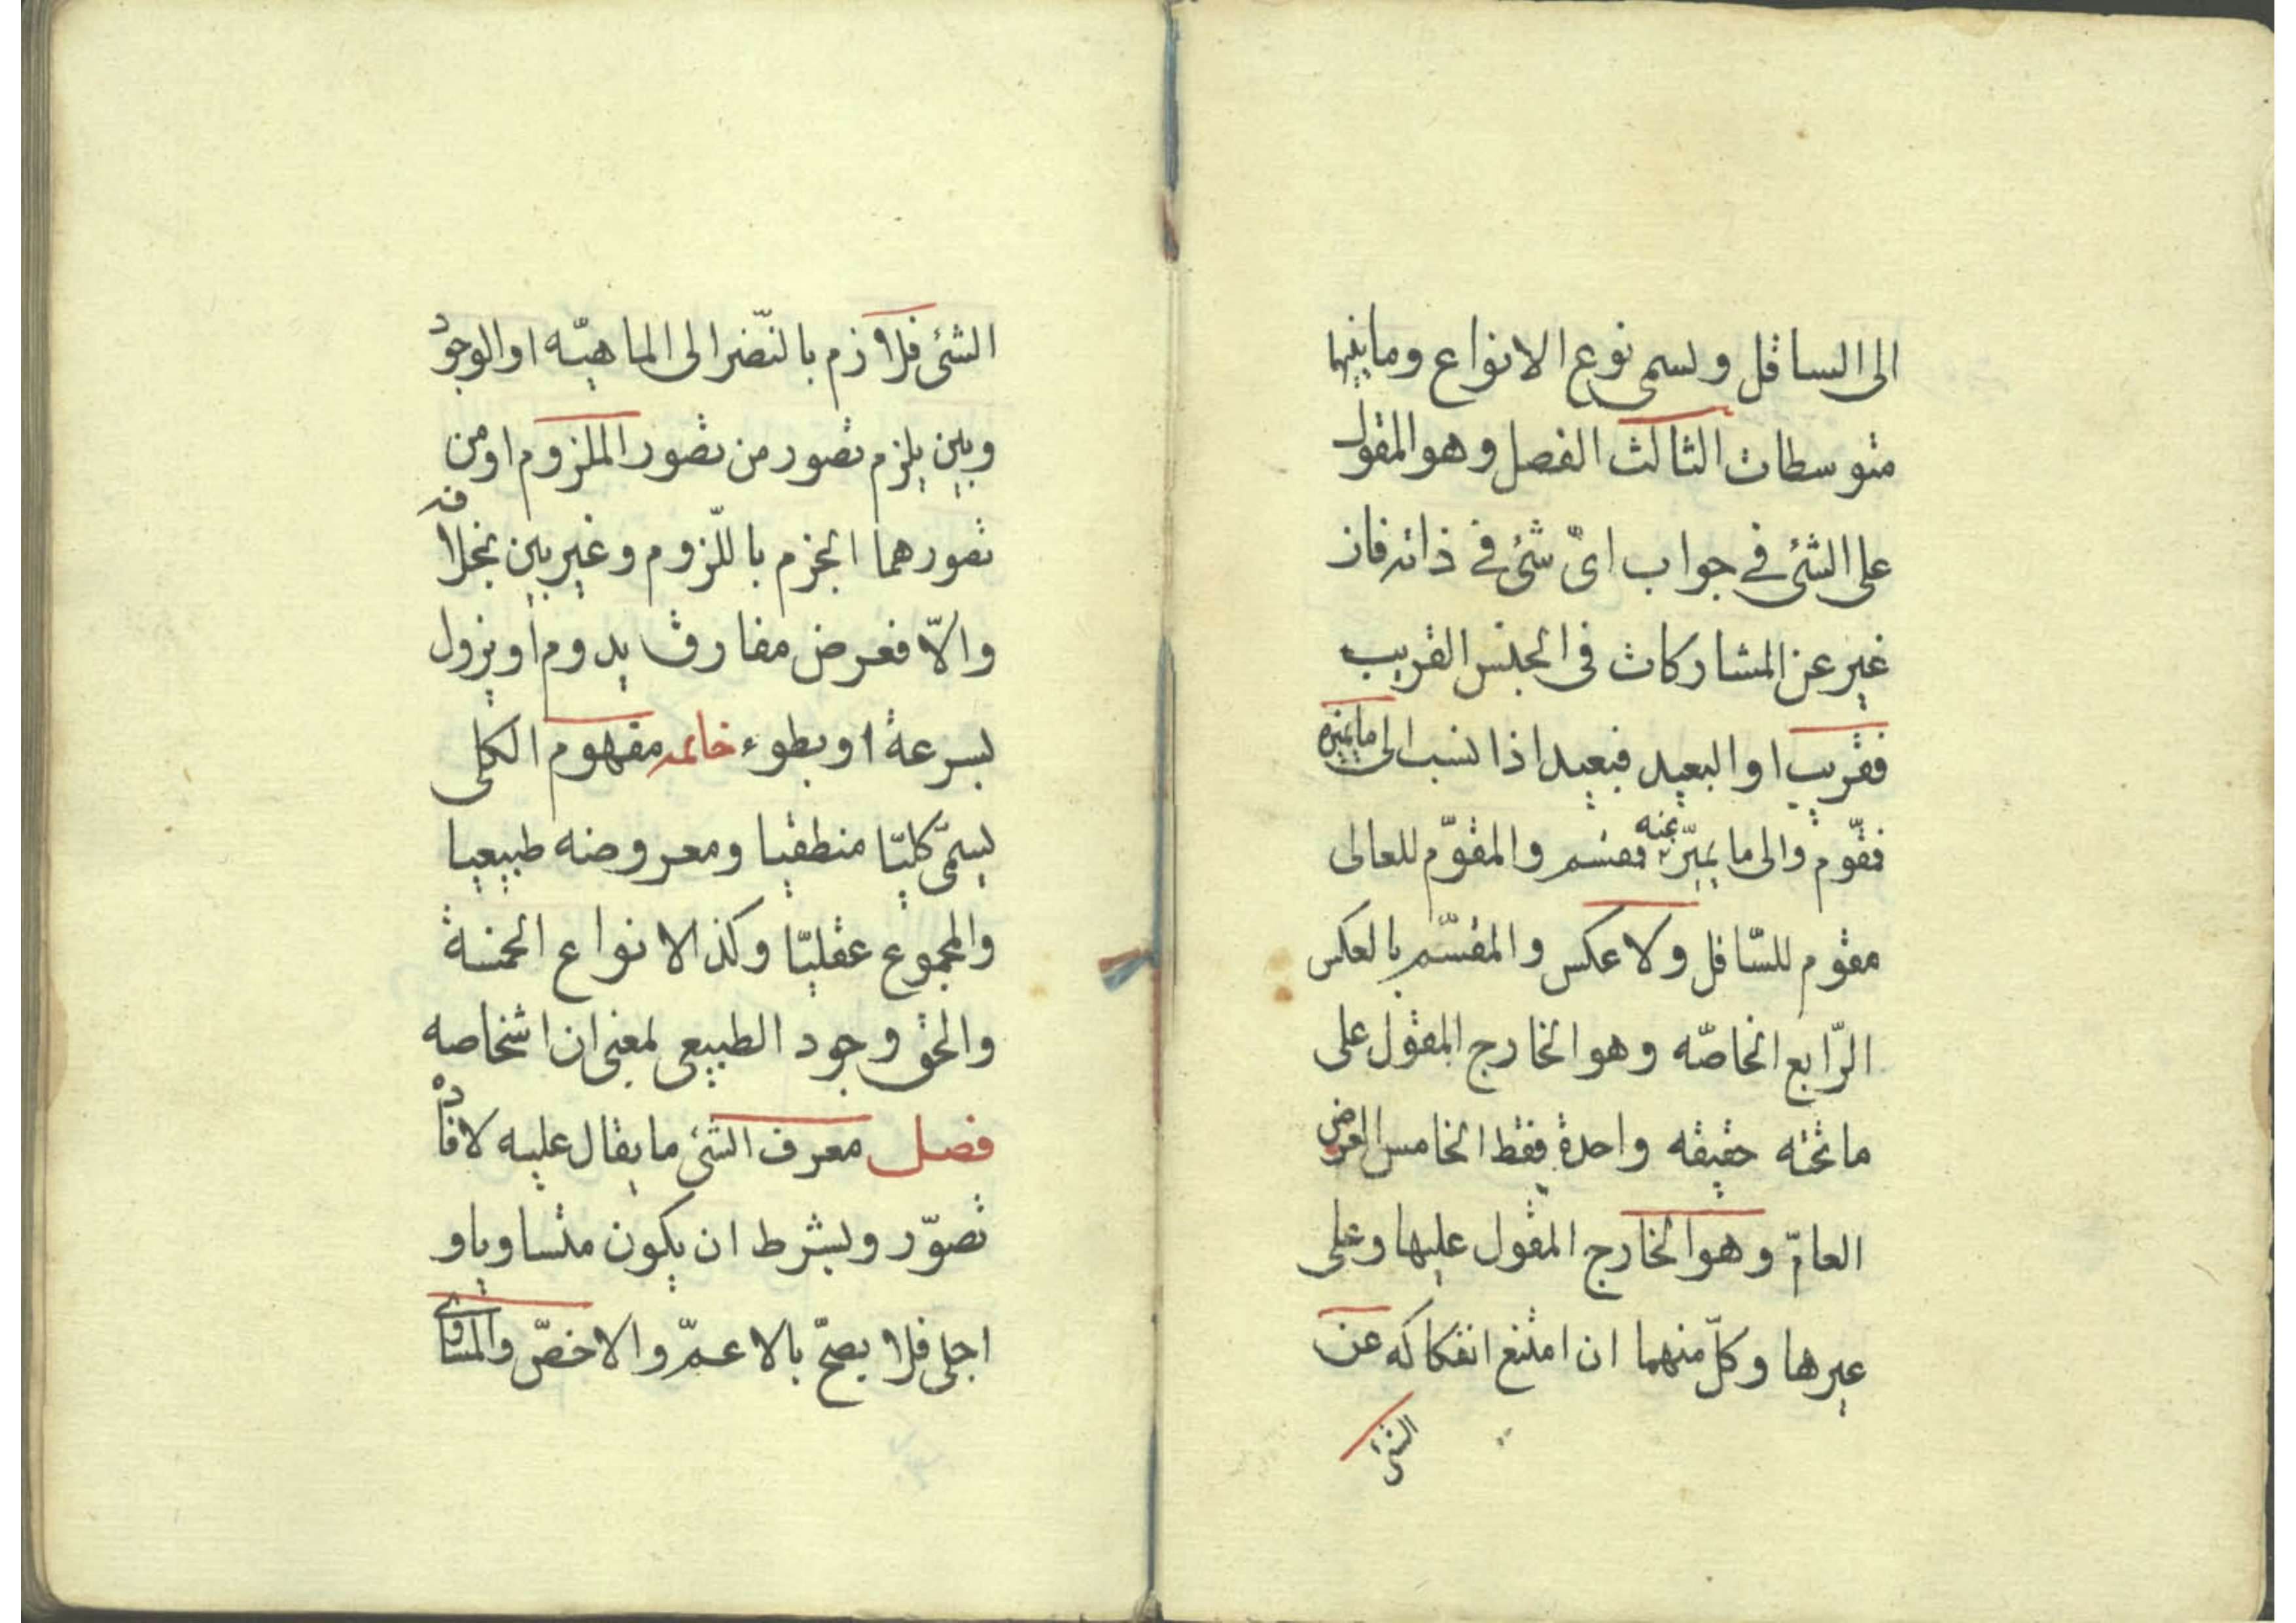 الى السافل ويسمى نوع الانواع وما بينهما
متوسطات الثالث الفصل وهو المقول
على الشئ في جواب اىّ شئ في ذاته فان
غير عن المشاركات فى الجنس القريب
فقريب او البعيد فبعيد اذا نسب الى ما يميزه
فمقوّم والى ما يميّز عنه فمقسم والمقوّم للعالى
مقوم للسّافل ولا عكس والمقسّم بالعكس
الرّابع الخاصّه وهو الخارج المقول على
ما تحته حقيقه واحدة فقط الخامس العرض
العامّ وهو الخارج المقول عليها وعلى
غيرها وكلّ منهما ان امتنع انفكاكه عن
الشئ
الشئ فلازم بالنّضر الى الماهيّه او الوجود
وبين يلزم تصور من تصور الملزوم او من
تصورهما الجزم باللّزوم وغير بين بخلافه
والاّ فعرض مفارق يدوم او يزول
بسرعة او بطوء خاتمه مفهوم الكلى
يسمّى كليّا منطقيا ومعروضه طبيعيا
والمجموع عقليّا وكذا الانواع الخمسة
والحق وجود الطبيعى بمعنى ان اشخاصه
فصل معرف الشئ ما يقال عليه لافاده
تصوّر ويشرط ان يكون متساويا و
اجلى فلا يصحّ بالاعمّ والاخصّ والمساوى